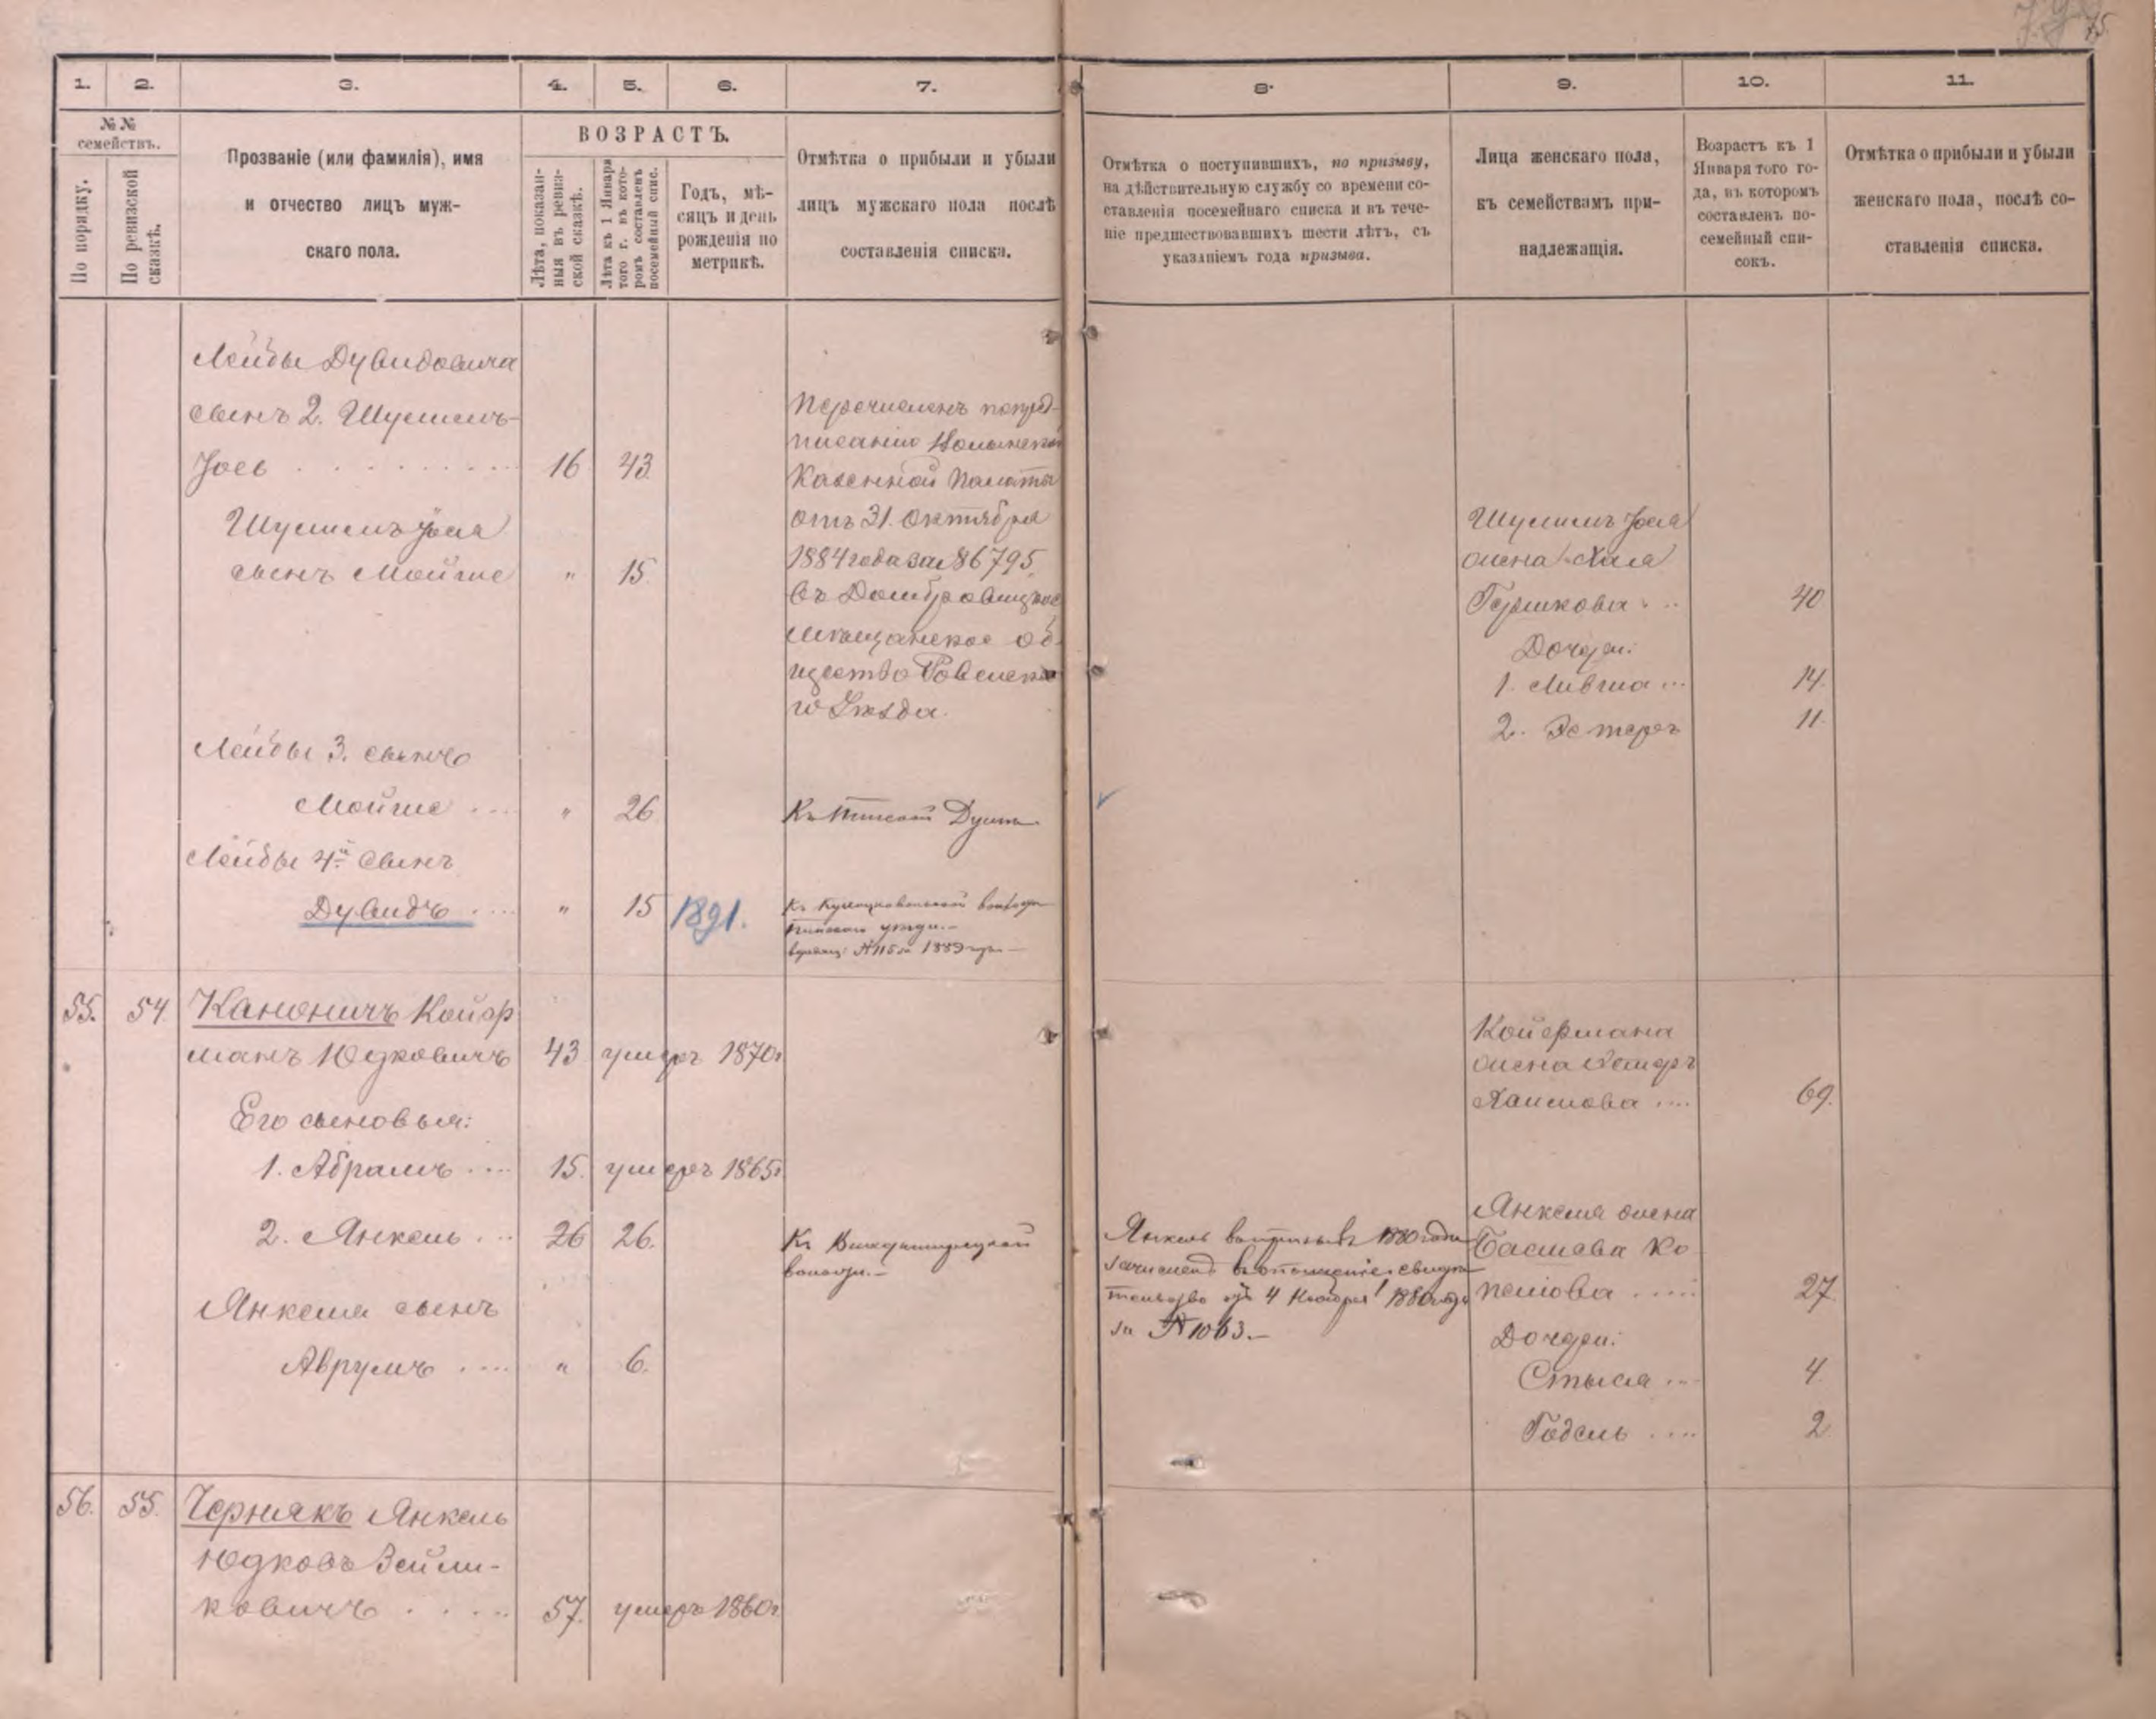 75.
1. 2. 3. 4. 5. 6. 7. 8. 9. 10. 11.
№ №
семействъ.
По порядку.
По ревизской
сказкѣ.
Прозваніе (или фамилія), имя
и отчество лицъ муж-
скаго пола.
ВОЗРАСТЪ.
Лѣта, показан-
ныя въ ревиз-
ской сказкѣ.
Лѣта къ 1 Января
того г. въ кото-
ромъ составленъ
посемейный спис.
Годъ, мѣ-
сяцъ и день
рожденія по
метрикѣ.
Отмѣтка о прибыли и убыли
лицъ мужскаго пола послѣ
составленія списка.
Отмѣтка о поступившихъ, по призыву,
на дѣйствительную службу со времени со-
ставленія посемейнаго списка и въ тече-
ніе предшествовавшихъ шести лѣтъ, съ
указаніемъ года призыва.
Лица женскаго пола,
къ семействамъ при-
надлежащія.
Возрастъ къ 1
Января того го-
да, въ которомъ
составленъ по-
семейный спи-
сокъ.
Отмѣтка о прибыли и убыли
женскаго пола, послѣ со-
ставленія списка.
Лейбы Дувидовича
сынъ 2. Шулимъ-
Іось 16 43
Шулимъ Іося
сынъ Мойше " 15.
Перечисленъ попред-
писанію Волынской
Казенной Палаты
отъ 31. Октября
1884 года за № 6795
въ Домбровицкое
мѣщанское об-
щество Ровенска-
го Уѣзда.
Шулимъ Іося
жена Хая
Гершкова 40
Дочери:
1. Ливша 14.
2. Эстеръ 11.
Лейбы 3. сынъ
Мойше " 26
Къ Пинской Думѣ
Лейбы 4й сынъ
Дувидъ " 15 1891.
Пинскаго уѣзда.
№ 115 за 1889 годъ
55. 54. Каноничъ Койер
манъ Юдковичъ 43 умеръ 1870г.
Его сыновья:
1. Абрамъ 15. умеръ 1865г.
2. Янкель 26 26.
Къ
волости.
Янкеля сынъ
Аврумъ " 6.
Янкель 1880 года
зачисленъ въ ополченіе свидѣ
тельство отъ 4 Ноября 1880 года
за № 1063.
Койермана
жена Эстеръ
Хаимова 69.
Янкеля жена
Басшева Ко
пелова 27
Дочери:
Стыся 4.
Годель 2
56. 55. Чернякъ Янкель
Юдковъ Зейли-
ковичъ 57. умеръ 1860г.